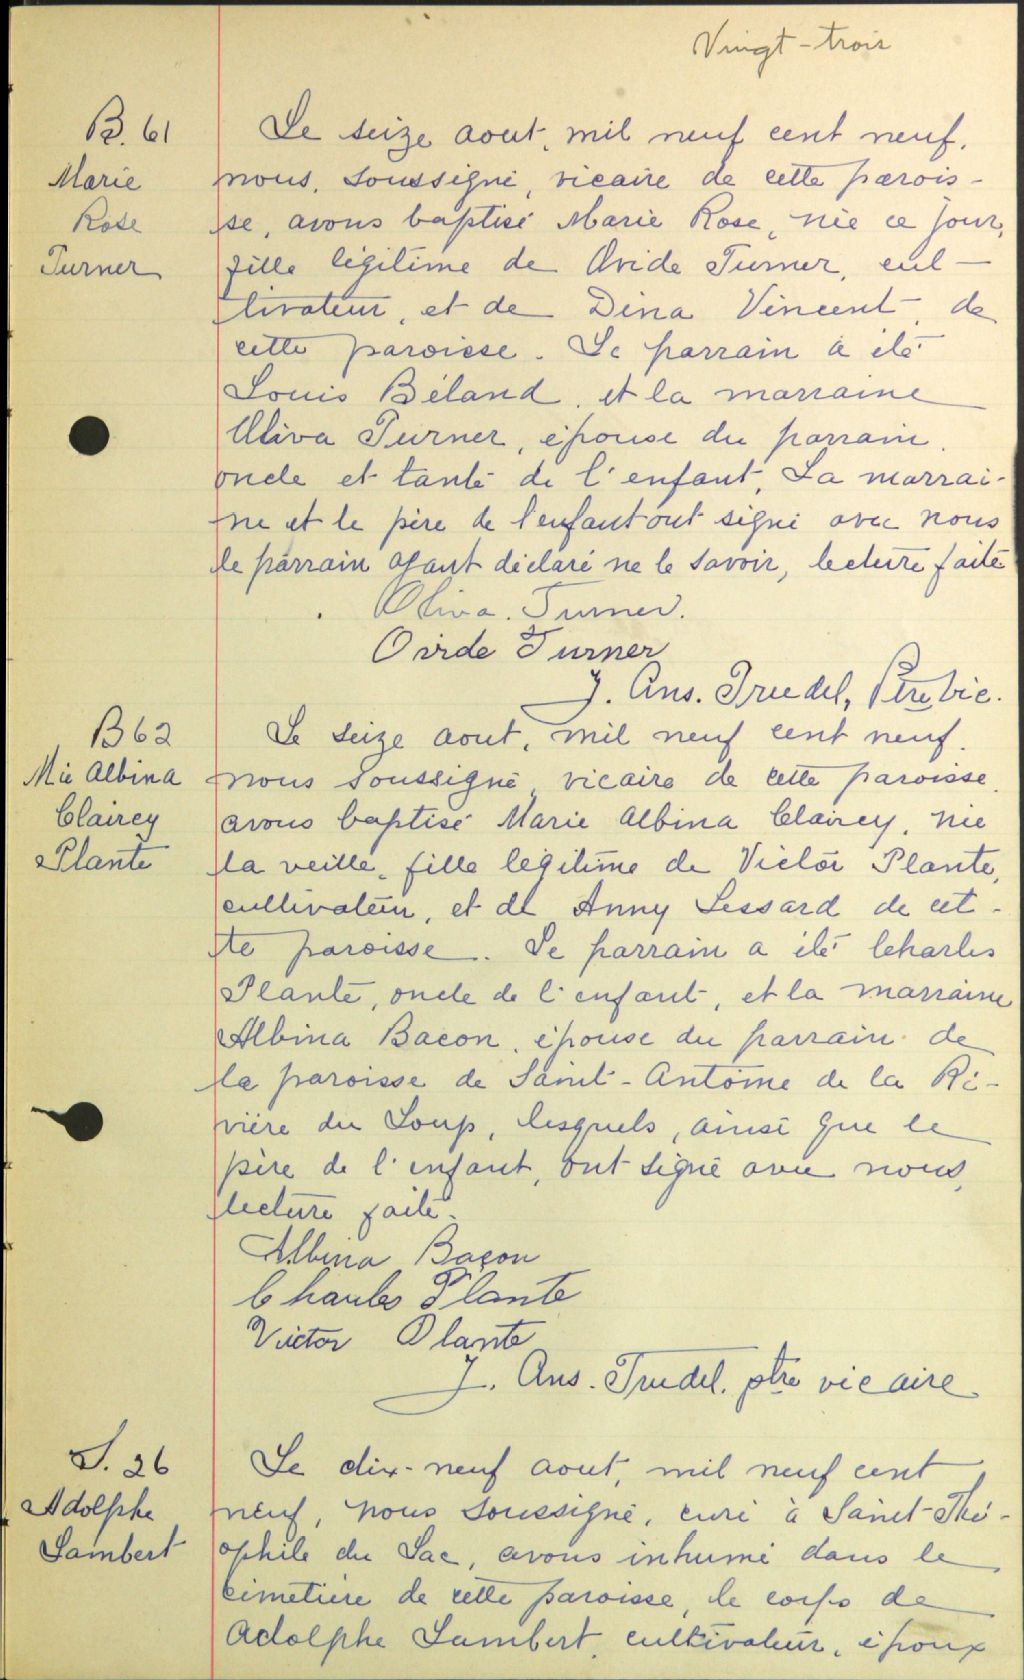 Vingt-trois
B. 61
Marie
Rose
Turner
Le seize aout, mil neuf cent neuf,
nous, soussigné, vicaire de cette parois-
se, avons baptisé Marie Rose, née ce jour,
fille légitime de Ovide Turner, cul-
tivateur, et de Dina Vincent, de
cette paroisse. Le parrain a été
Louis Béland, et la marraine
Oliva Turner, épouse du parrain,
oncle et tante de l'enfant. La marrai-
ne et le père de l'enfant ont signé avec nous
le parrain ayant déclaré ne le savoir, lecture faite
Oliva. Turner.
Ovide Turner
J. Ans. Trudel, Ptre vic.
B 62
Mie Albina
Clairey
Plante
Le seize aout, mil neuf cent neuf.
nous soussigné, vicaire de cette paroisse,
avons baptisé Marie Albina Clairey, née
la veille, fille légitime de Victor Plante,
cultivateur, et de Anny Lessard de cet-
te paroisse. Le parrain a été Charles
Plante, oncle de l'enfant, et la marraine
Albina Bacon, épouse du parrain de
la paroisse de Saint-Antoine de la Ri-
vière du Loup, lesquels, ainsi que le
père de l'enfant, ont signé avec nous,
lecture faite.
Albina Bacon
Charles Plante
Victor Plante
J. Ans. Trudel. ptre vicaire
S. 26
Adolphe
Lambert
Le dix-neuf aout, mil neuf cent
neuf, nous soussigné, curé à Saint-Thé-
ophile du Lac, avons inhumé dans le
cimetière de cette paroisse, le corps de
Adolphe Lambert, cultivateur, époux